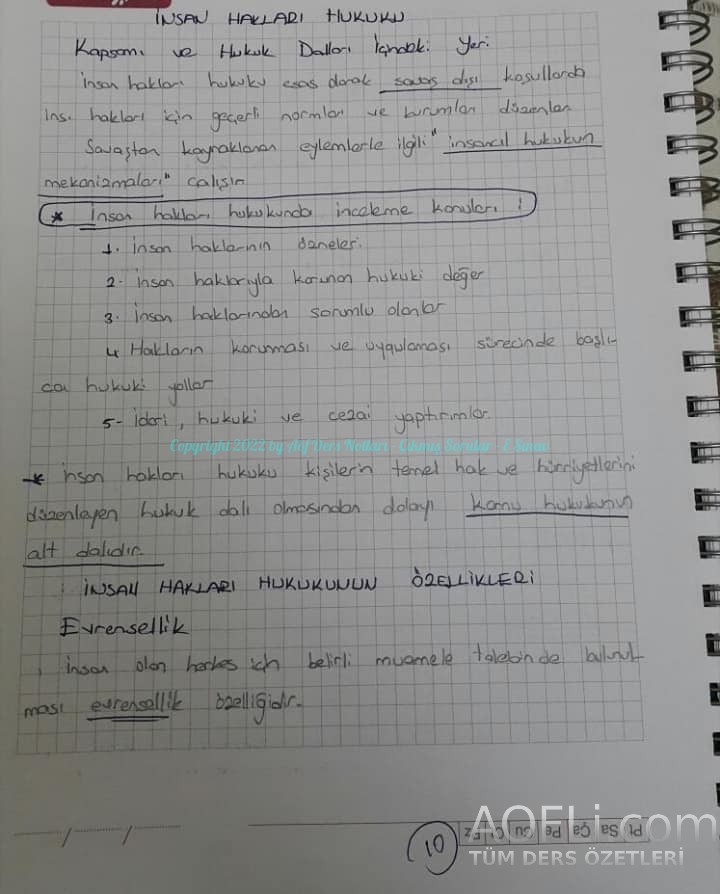 İNSAN HAKLARI HUKUKU
Kapsamı ve Hukuk Dalları İçindeki Yeri
İnsan hakları hukuku esas olarak savaş dışı koşullarda
ins. hakları için geçerli normları ve kurumları düzenler
Savaştan kaynaklanan eylemlerle ilgili "insancıl hukukun
mekanizmaları" çalışır
* İnsan hakları hukukunda inceleme konuları :
1. İnsan haklarının özneleri
2- İnsan haklarıyla korunan hukuki değer
3. İnsan haklarından sorumlu olanlar
4 Hakların korunması ve uygulaması sürecinde başlı-
ca hukuki yollar
5- İdari, hukuki ve cezai yaptırımlar
Copyright 2022 by Ders Notları
* İnsan hakları hukuku kişilerin temel hak ve hürriyetlerini
düzenleyen hukuk dalı olmasından dolayı kamu hukukunun
alt dalıdır.
İNSAN HAKLARI HUKUKUNUN ÖZELLİKLERİ
Evrensellik
İnsan olan herkes için belirli muamele talebinde bulun
ması evrensellik özelliğidir.
01
Pt Sa Ça Pe Cu Ct Pz
AOFLi.com
TÜM DERS ÖZETLERİ